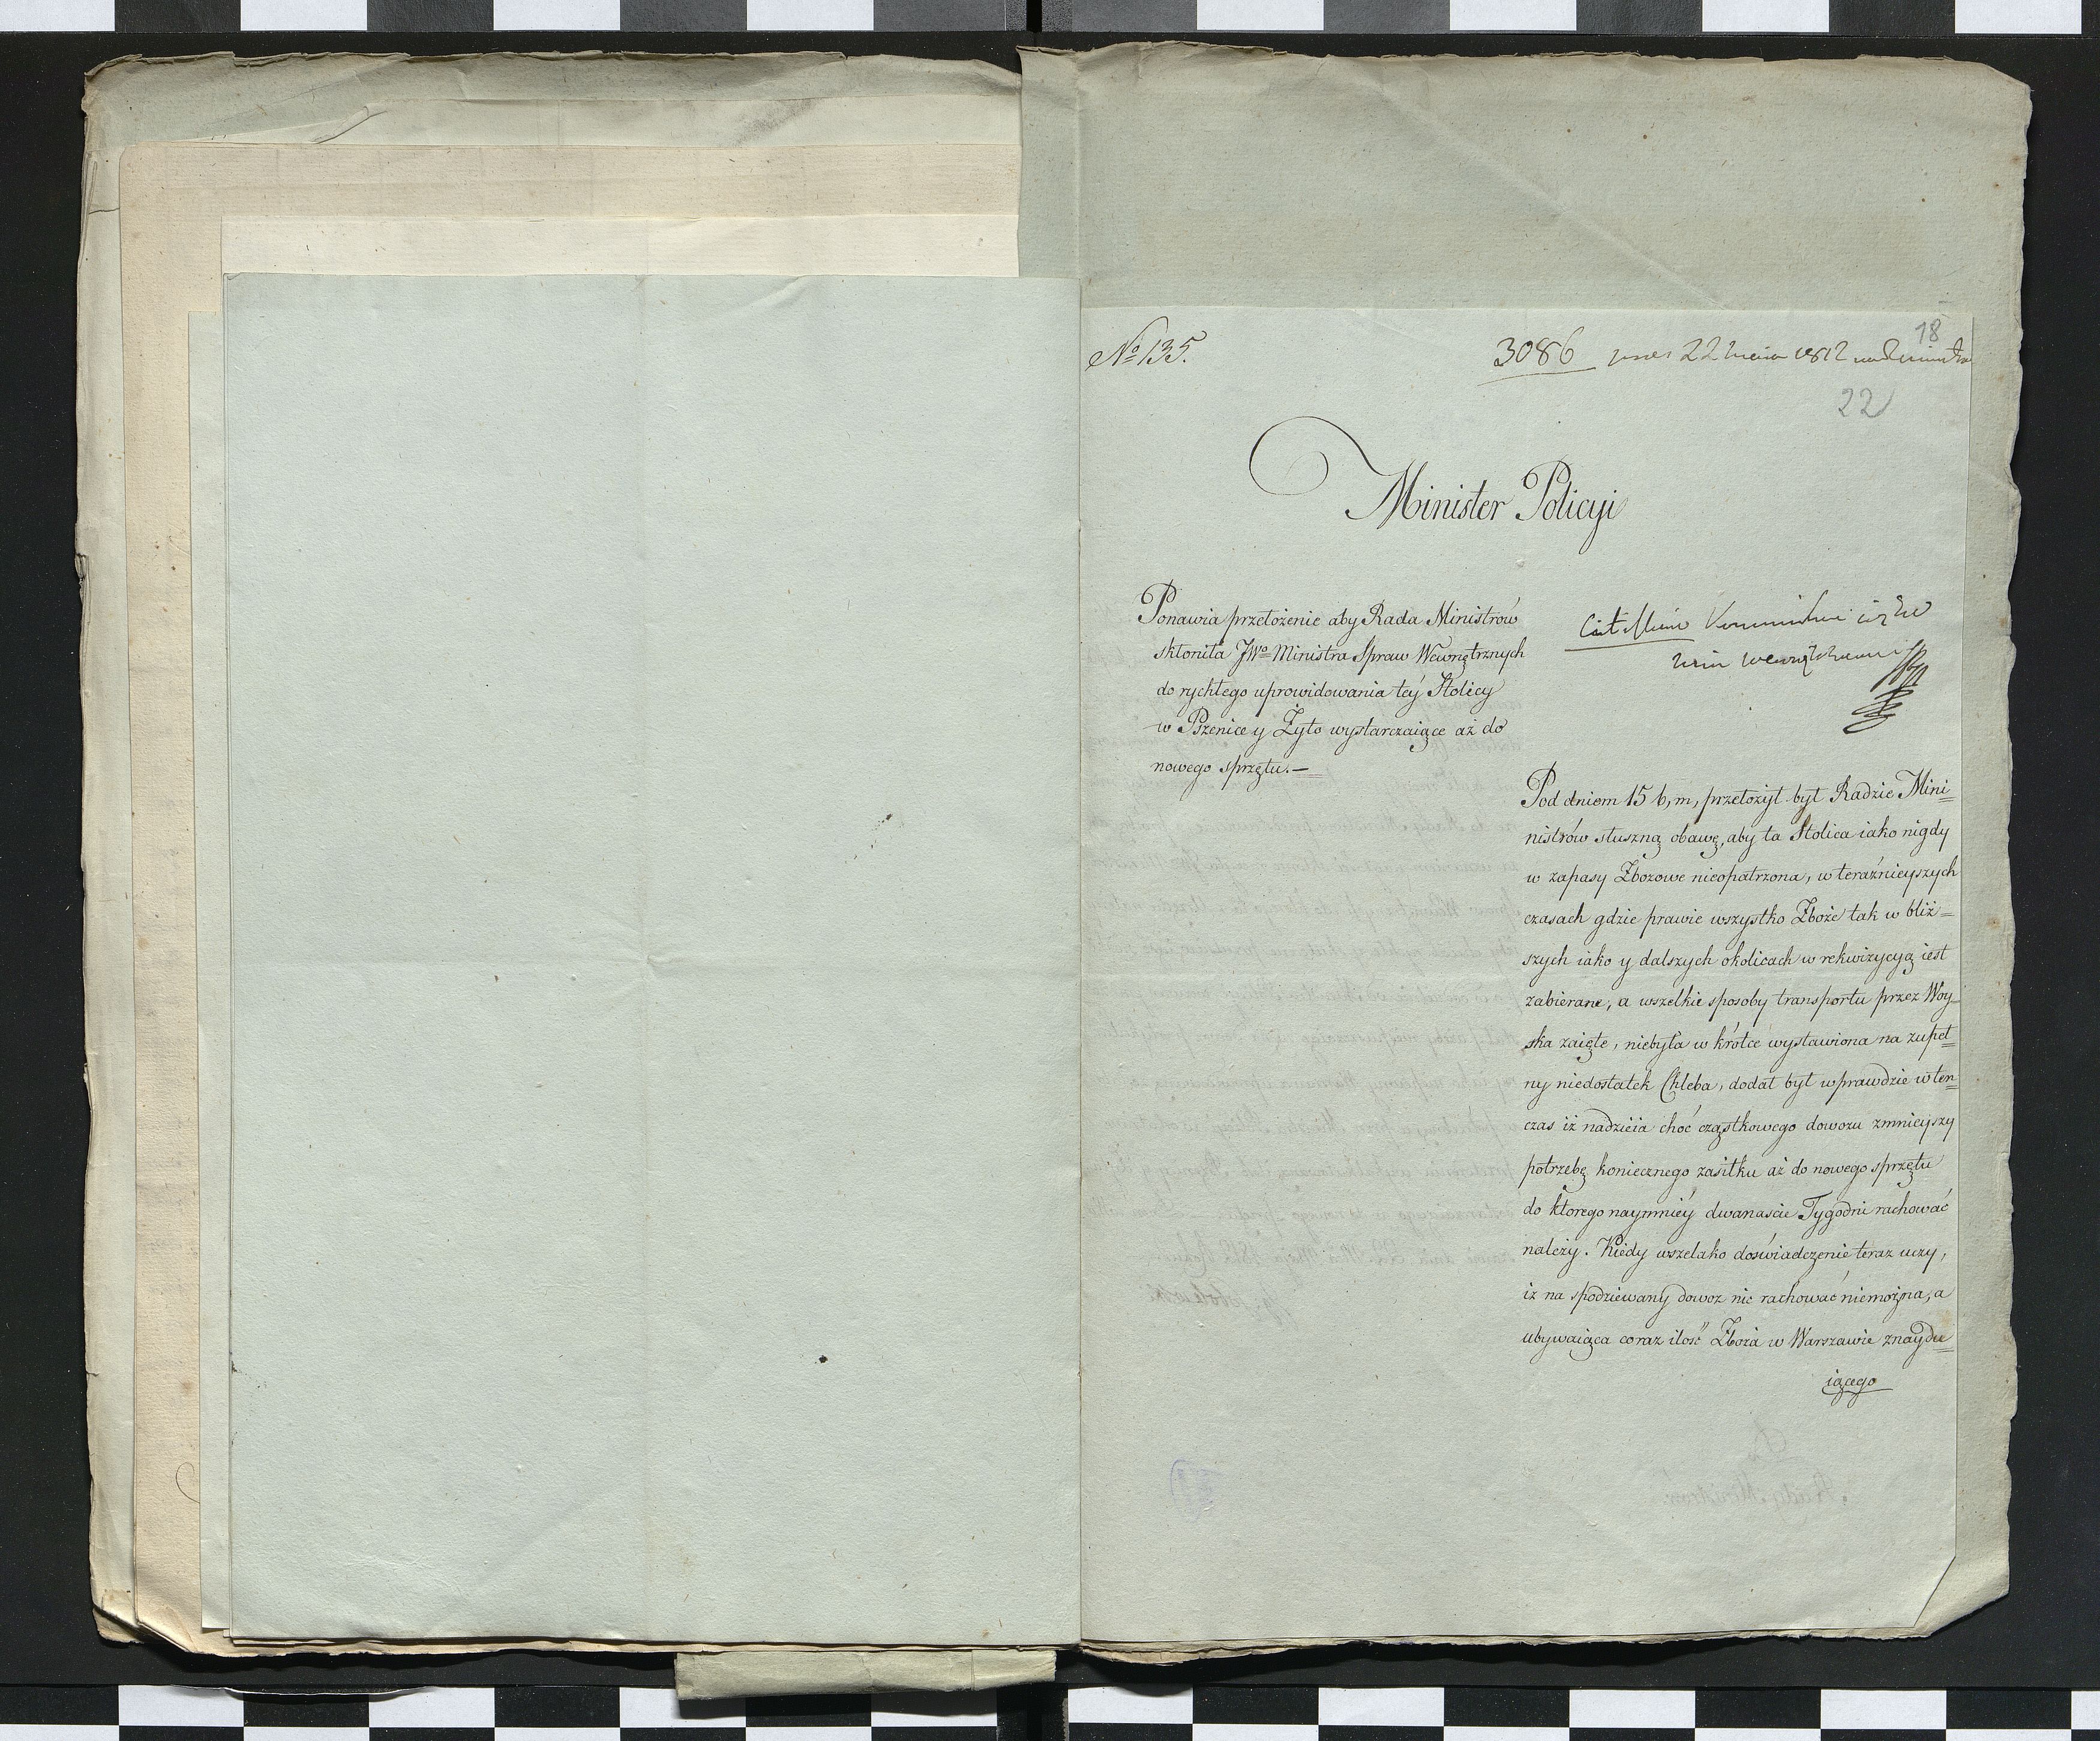 No 135.
3086 22 1812
18
22
Minister Policyi
Ponawia przełożenie aby Rada Ministrów
skłoniła JWo Ministra Spraw Wewnętrznych
do rychłego uprowidowania téy Stolicy
w Pszenicę y Żyto wystarczaiące aż do
nowego sprzętu.—
Pod dniem 15 b, m, przełożył był Radzie Mini=
nistrów słuszną obawę, aby ta Stolica iako nigdy
w zapasy Zbożowe nieopatrzona, w teraźnieyszych
czasach gdzie prawie wszystko Zboże tak w bliż=
szych iako y dalszych okolicach w rekwizycyą iest
zabierane, a wszelkie sposoby transportu przez Woy=
ska zaięte, niebyła w krótce wystawiona na zupeł=
ny niedostatek Chleba, dodał był wprawdzie w ten=
czas iż nadzieia choć cząstkowego dowozu zmnieyszy
potrzebę koniecznego zasiłku aż do nowego sprzętu
do ktorego naymniéy dwanaście Tygodni rachować
należy. Kiedy wszelako doświadczenie teraz uczy,
iż na spodziewany dowoz nic rachować niemożna, a
ubywaiąca coraz ilość Zboża w Warszawie znaydu=
iącego